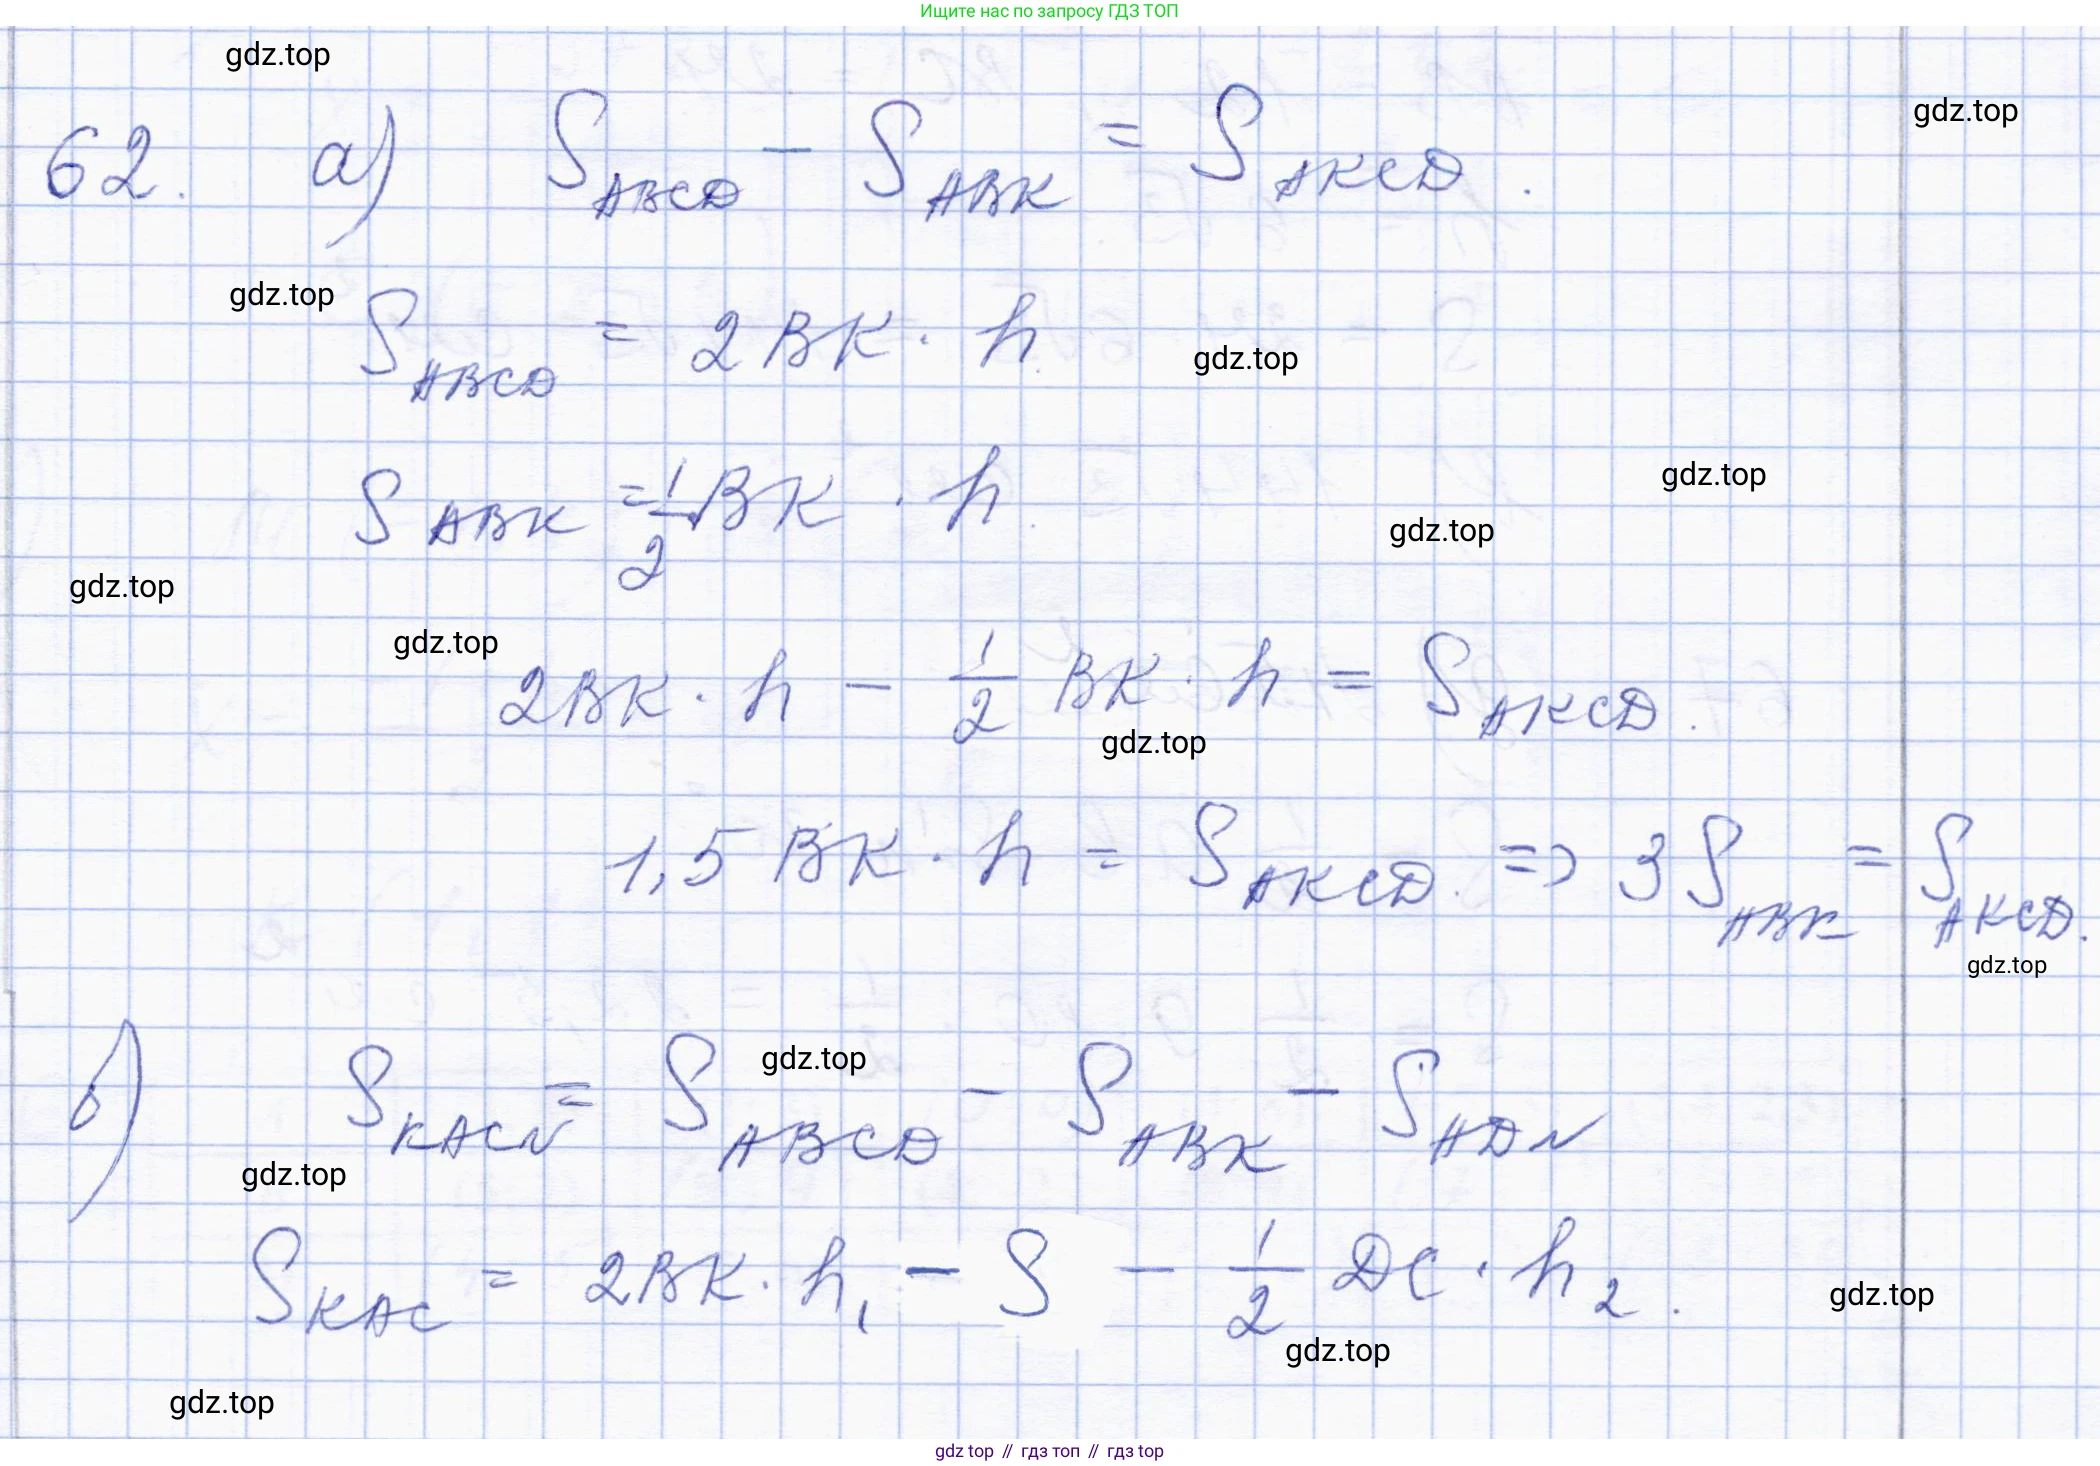 Ищите нас по запросу ГДЗ ТОП
gdz.top
gdz.top
62. а) S_ABCD - S_ABK = S_AKCD.
gdz.top
S_ABCD = 2BK · h.
gdz.top
gdz.top
S_ABK = 1/2 BK · h.
gdz.top
gdz.top
gdz.top
2BK · h - 1/2 BK · h = S_AKCD.
gdz.top
1,5 BK · h = S_AKCD. => 3 S_ABK = S_AKCD.
gdz.top
gdz.top
б) S_KACN = S_ABCD - S_ABK - S_ADN
gdz.top
S_KAC = 2BK · h₁ - S - 1/2 DC · h₂.
gdz.top
gdz.top
gdz.top
gdz top // гдз топ // гдз top